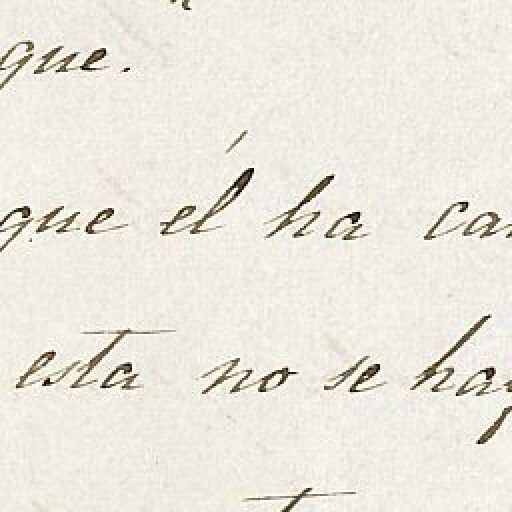 que.
que él ha
esta no se